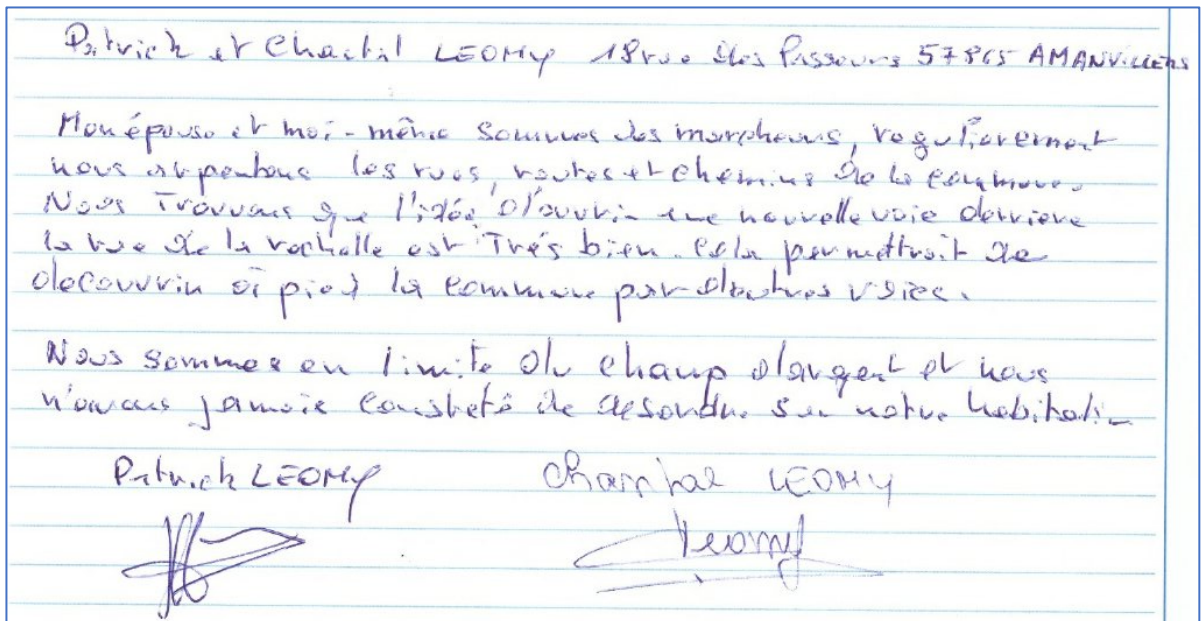 Patrick et Chantal LEOMY 18 rue des Passeurs 57865 AMANVILLERS
Mon épouse et moi-même sommes des marcheurs, regulièrement
nous arpentons les rues, routes et chemins de la commune.
Nous Trouvons que l'idée d'ouvrir une nouvelle voie derriere
la rue de la rochelle est Trés bien. Cela permettrait de
decouvrir à pied la commune par d'autres voies.
Nous sommes en limite du champ d'argent et nous
n'avons jamais constaté de desordre sur notre habitation
Patrick LEOMY Chantal LEOMY
Leomy